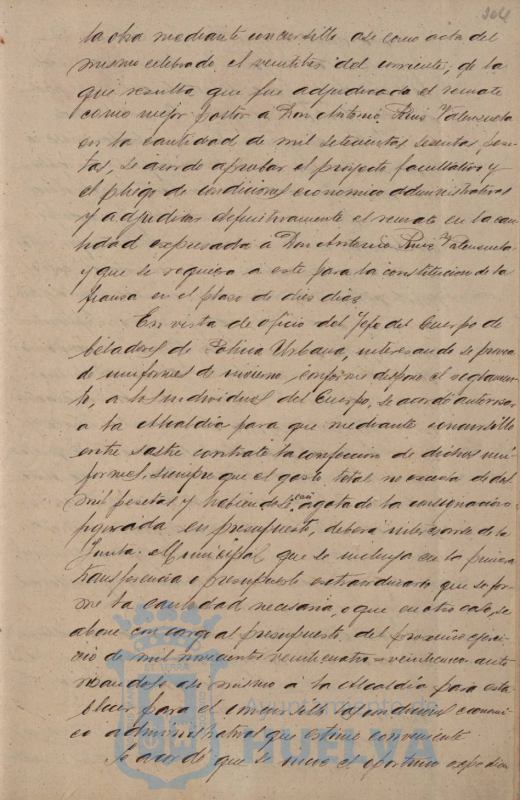 la obra mediante concursillo asi como acta del
mismo celebrado el veintitres del corriente, de la
que resulta que fue adjudicado el remate
como mejor postor a Don Antonio Ruiz Valenzuela
en la cantidad de mil setecientas sesenta pese-
tas, se acordó aprobar el proyecto facultativo y
el pliego de condiciones economico administrativas
y adjudicar definitivamente el remate en la can-
tidad expresada á Don Antonio Ruiz Valenzuela
y que se requiera á este para la constitucion de la
fianza en el plazo de diez dias
En vista de oficio del Jefe del Cuerpo de
Celadores de Policia Urbana, interesando se provea
de uniformes de invierno, conforme dispone el reglamen-
to, a los individuos del Cuerpo, se acordó autorizar
a la Alcaldia para que mediante concursillo
entre sastre contrate la confeccion de dichos uni-
formes, siempre que el gasto total no exceda de dos
mil pesetas y habiendose casi agotado la consignacion
en presupuesto, deberá interesarse de la
Junta Municipal que se incluya en la primera
transferencia o presupuesto extraordinario que se for-
me la cantidad necesaria, o que en otro caso, se
abone con cargo al presupuesto del proximo ejerci-
cio de mil novecientos veinticuatro = veinticinco auto-
rizandole asi mismo á la Alcaldia para esta-
blecer para el concursillo las condiciones economi-
co administrativas que estime conveniente
Se acordó que se inicie el oportuno expedien
Ayuntamiento de
HUELVA